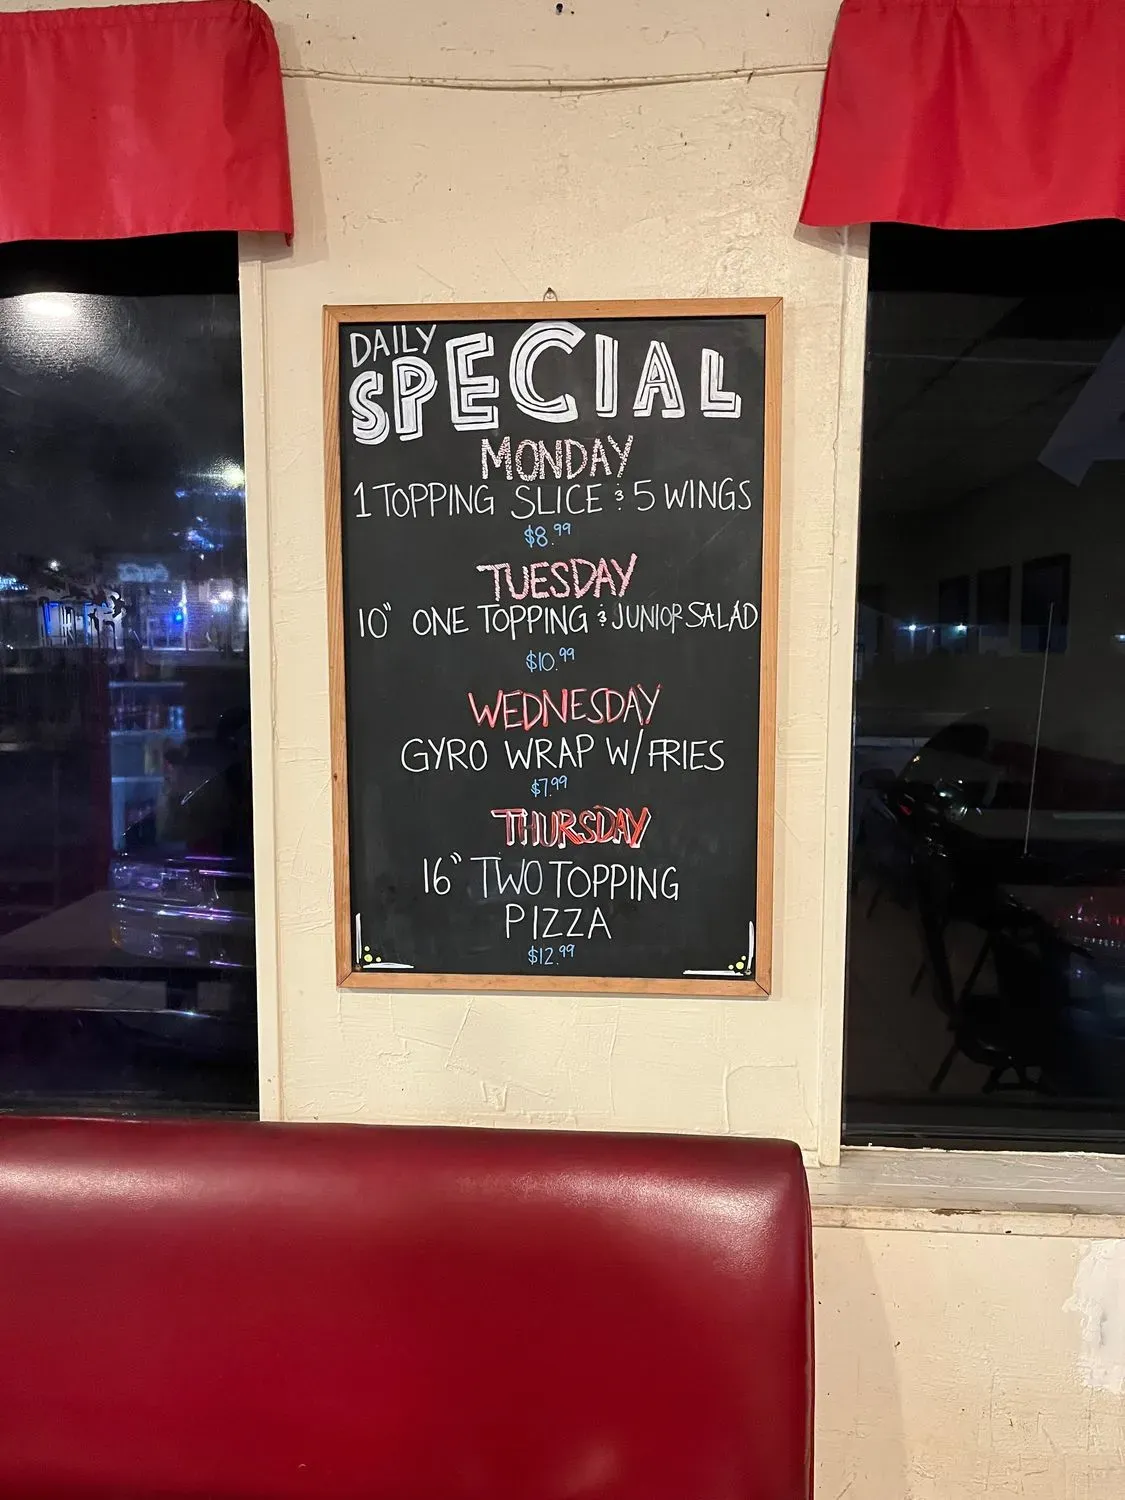 DAILY
SPECIAL
MONDAY
1 TOPPING SLICE & 5 WINGS
$8.99
TUESDAY
10" ONE TOPPING & JUNIOR SALAD
$10.99
WEDNESDAY
GYRO WRAP W/ FRIES
$7.99
THURSDAY
16" TWO TOPPING
PIZZA
$12.99